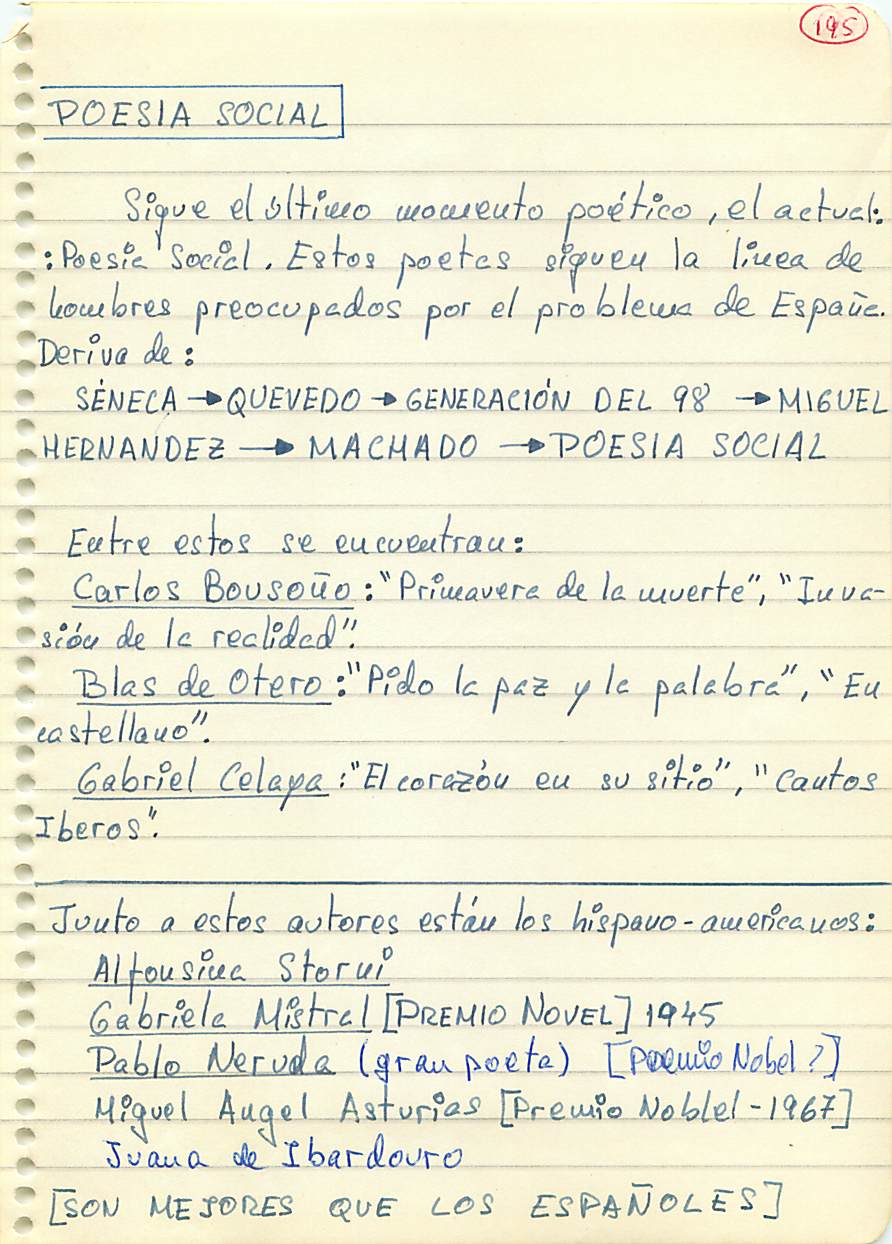 195
POESIA SOCIAL
Sigue el último momento poético, el actual:
: Poesia Social. Estos poetas siguen la línea de
hombres preocupados por el problema de España.
Deriva de:
SÉNECA → QUEVEDO → GENERACIÓN DEL 98 → MIGUEL
HERNANDEZ → MACHADO → POESIA SOCIAL
Entre estos se encuentran:
Carlos Bousoño: "Primavera de la muerte", "Inva-
sión de la realidad".
Blas de Otero: "Pido la paz y la palabra", "En
castellano".
Gabriel Celaya: "El corazón en su sitio", "Cantos
Iberos".
Junto a estos autores están los hispano-americanos:
Alfonsina Storni
Gabriela Mistral [PREMIO NOVEL] 1945
Pablo Neruda (gran poeta) [Poemio Nobel?]
Miguel Angel Asturias [Premio Noblel - 1967]
Juana de Ibardouro
[SON MEJORES QUE LOS ESPAÑOLES]